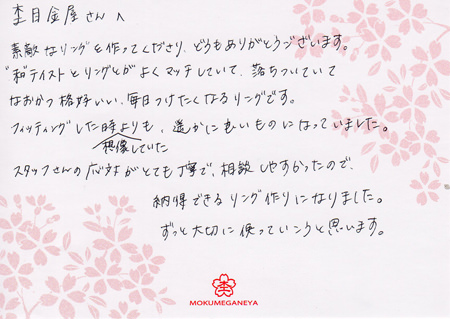 杢目金屋さんへ
素敵なリングを作ってくださり、どうもありがとうございます。
"和"テイストとリングとがよくマッチしていて、落ちついていて
なおかつ格好いい、毎日つけたくなるリングです。
フィッティングした時よりも、遥かに良いものになっていました。
想像していた
スタッフさんの応対がとても丁寧で、相談しやすかったので、
納得できるリング作りになりました。
ずっと大切に使っていこうと思います。
MOKUMEGANEYA